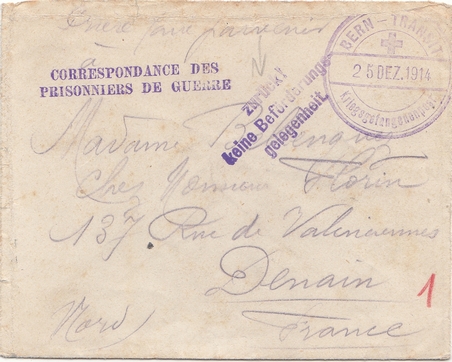 Prière faire parvenir
CORRESPONDANCE DES
PRISONNIERS DE GUERRE
zurück!
keine Beförderungs-
gelegenheit
BERN - TRANSIT
25 DEZ. 1914
Kriegsgefangenenpost
Madame
Chez Monsieur Florin
137 Rue de Valenciennes
Denain
Nord)
France
1